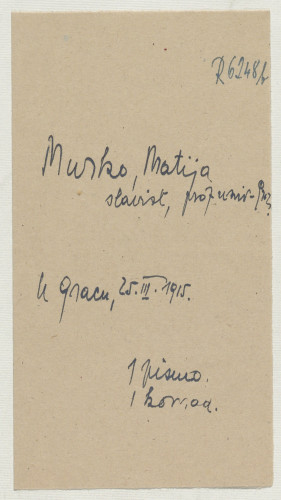 R6248b
Murko, Matija
slavist, prof. univ.
U Gracu, 25. III. 1915.
1 pismo.
1 kov.